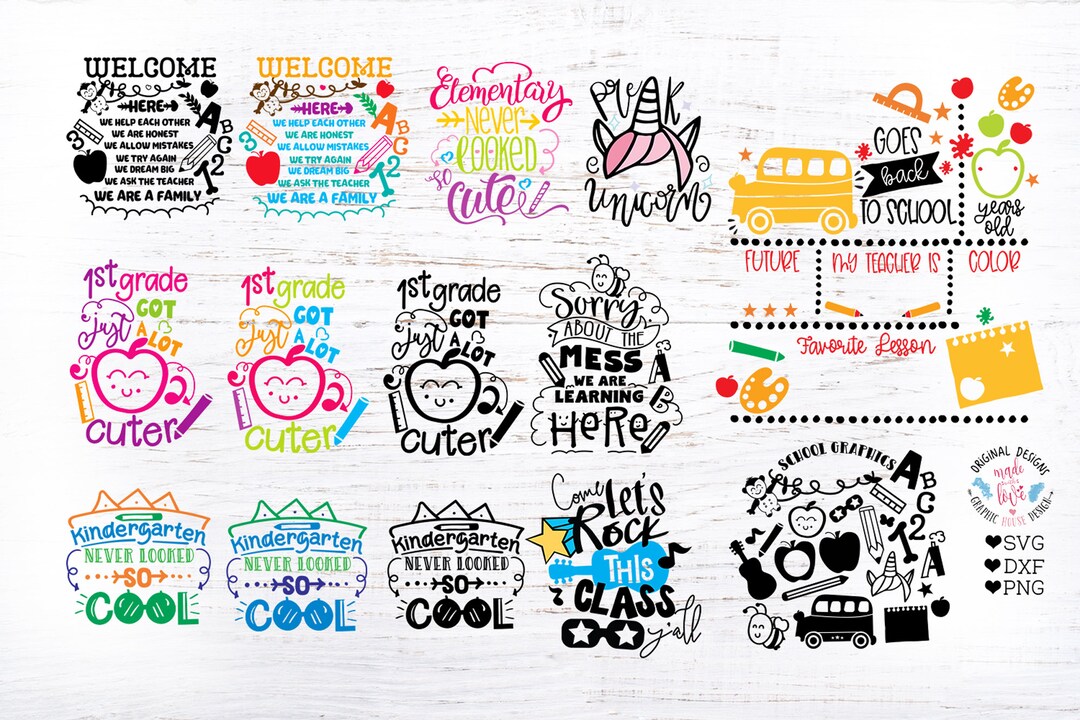 WELCOME
HERE
WE HELP EACH OTHER
WE ARE HONEST
WE ALLOW MISTAKES
WE TRY AGAIN
WE DREAM BIG
WE ASK THE TEACHER
WE ARE A FAMILY
A
B
C
3
12
WELCOME
HERE
WE HELP EACH OTHER
WE ARE HONEST
WE ALLOW MISTAKES
WE TRY AGAIN
WE DREAM BIG
WE ASK THE TEACHER
WE ARE A FAMILY
A
B
C
3
12
Elementary
Never
LOOKED
so
cute
PreK
Unicorn
GOES
back
TO SCHOOL
years
old
FUTURE
MY TEACHER IS
COLOR
Favorite Lesson
1st grade
just GOT
A LOT
cuter
1st grade
just GOT
A LOT
cuter
1st grade
just GOT
A LOT
cuter
Sorry
ABOUT THE
MESS
WE ARE
LEARNING
HeRe
A
B
kindergarten
NEVER LOOKED
SO
COOL
kindergarten
NEVER LOOKED
SO
COOL
kindergarten
NEVER LOOKED
SO
COOL
Come
LeT's
Rock
THIS
CLASS
y'all
SCHOOL GRAPHICS
A
B
C
12
A
ORIGINAL DESIGNS
made
with
love
GRAPHIC HOUSE DESIGN
SVG
DXF
PNG